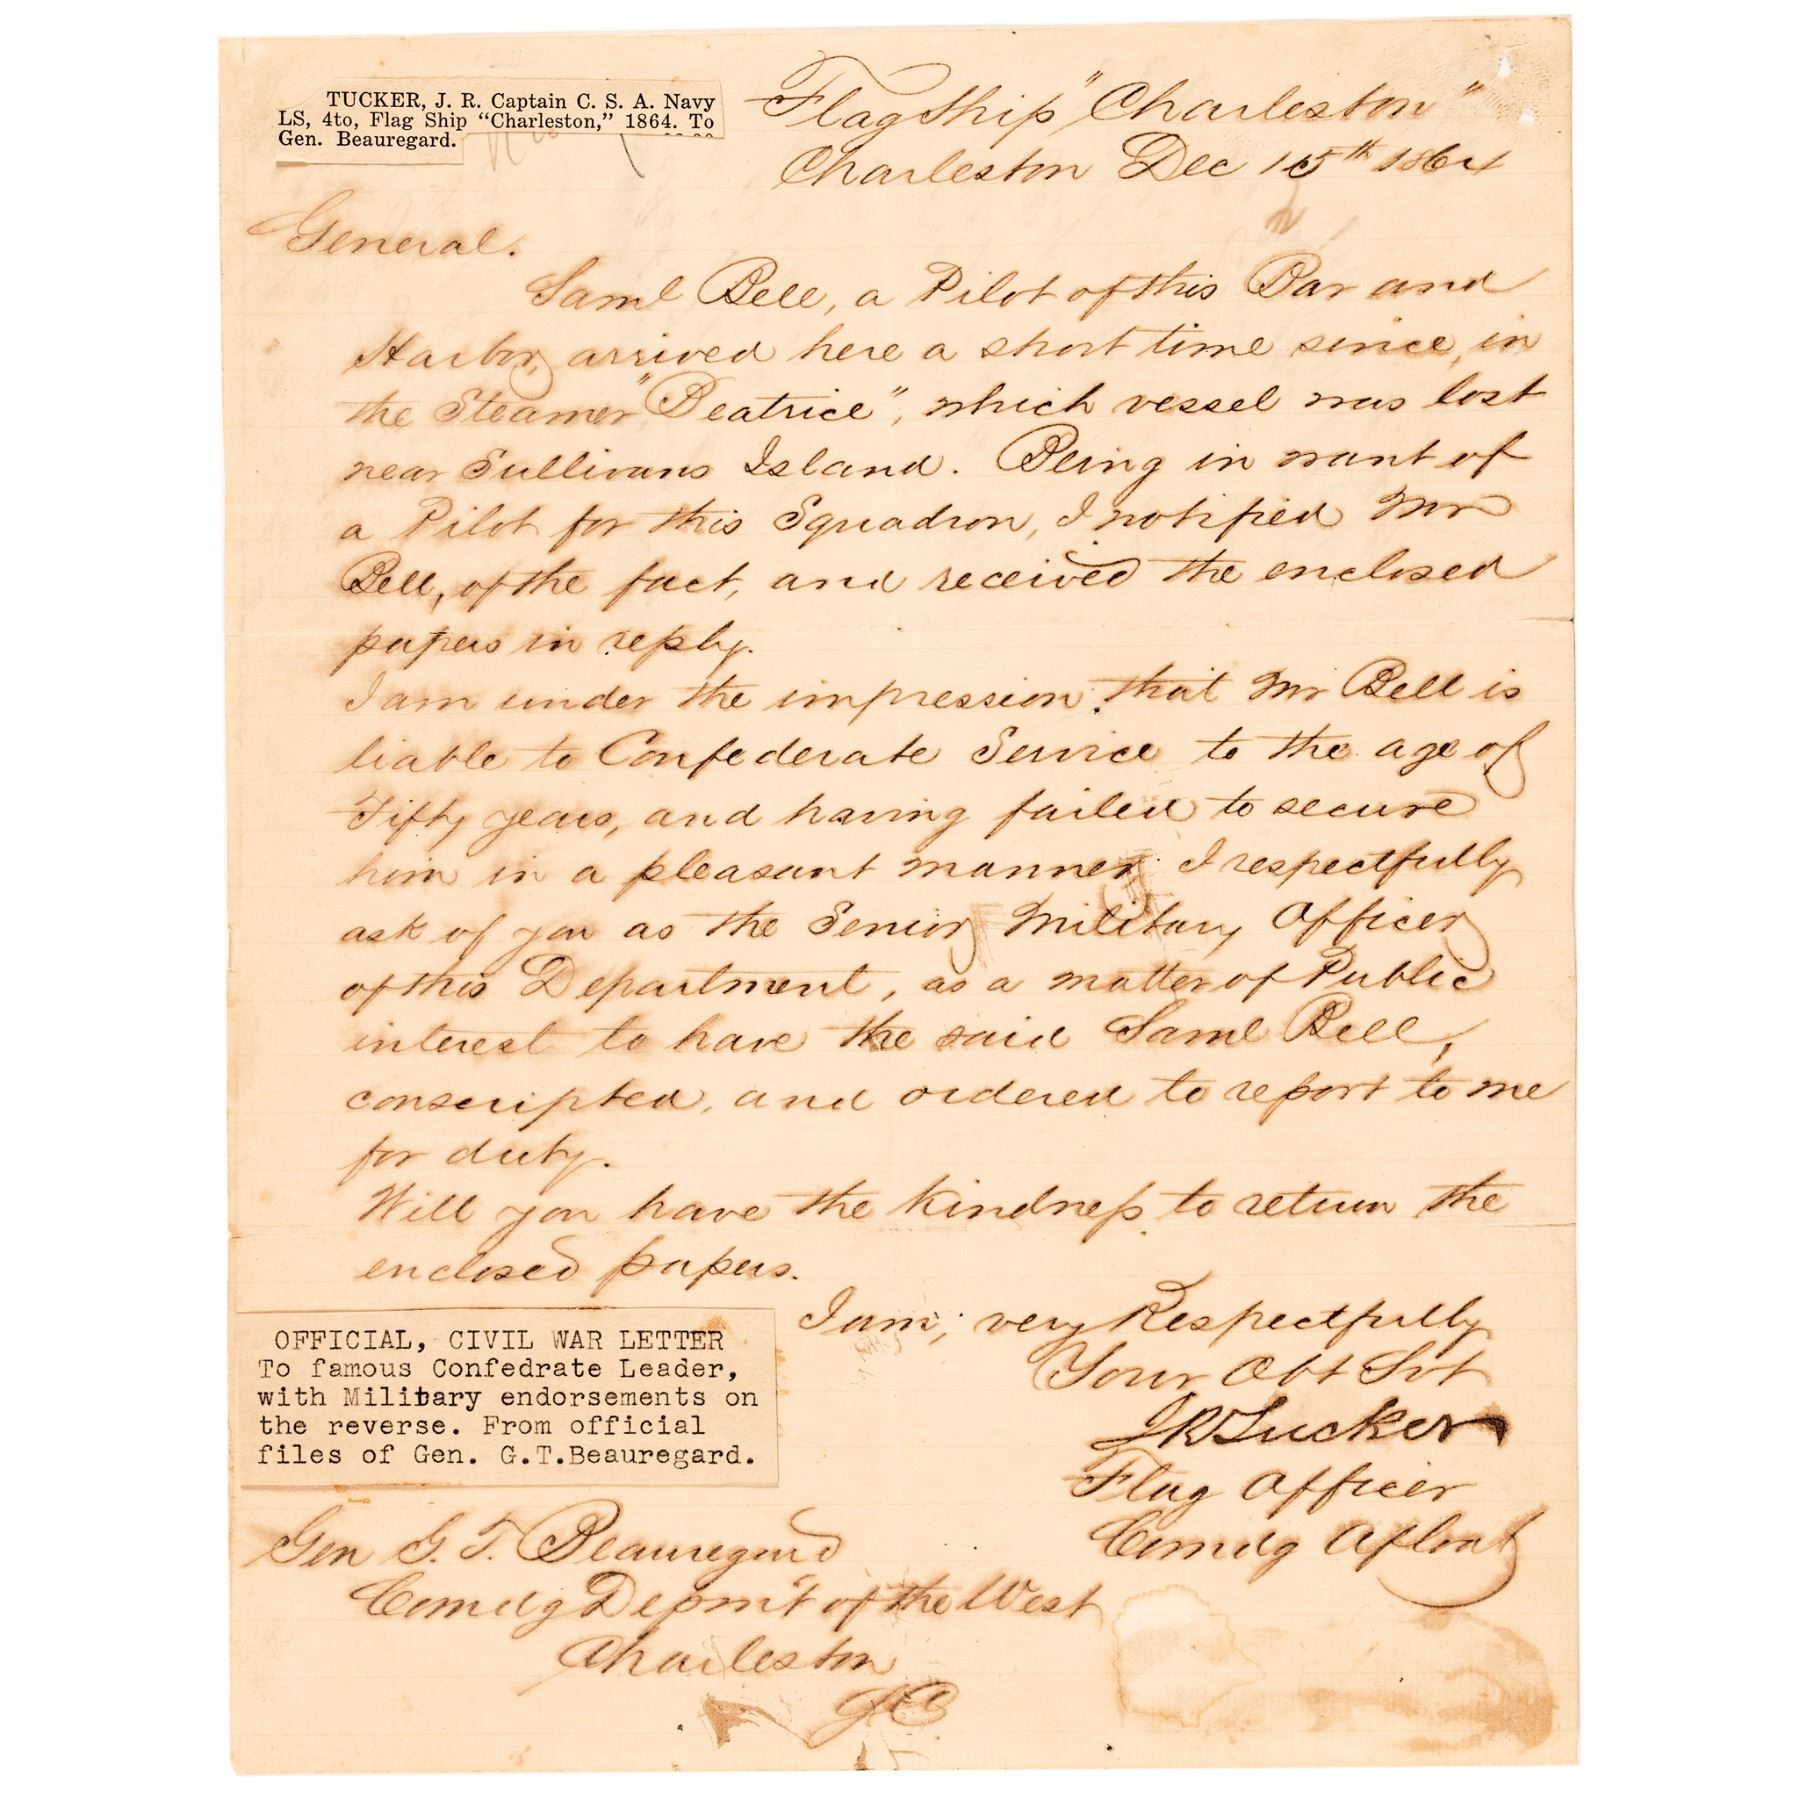 TUCKER, J. R. Captain C. S. A. Navy
LS, 4to, Flag Ship “Charleston,” 1864. To
Gen. Beauregard.
Flag Ship "Charleston"
Charleston Dec 15th 1864
General.
Saml Bell, a Pilot of this Bar and
Harbor, arrived here a short time since, in
the Steamer "Beatrice", which vessel was lost
near Sullivans Island. Being in want of
a Pilot for this Squadron, I notified Mr
Bell, of the fact, and received the enclosed
papers in reply.
I am under the impression, that Mr Bell is
liable to Confederate Service to the age of
Fifty years, and having failed to secure
him in a pleasant manner, I respectfully
ask of you as the Senior Military Officer
of this Department, as a matter of Public
interest to have the said Saml Bell,
conscripted, and ordered to report to me
for duty.
Will you have the kindness to return the
enclosed papers.
I am, very Respectfully
Your Obt Svt
JR Tucker
Flag Officer
Comdg Afloat
OFFICIAL, CIVIL WAR LETTER
To famous Confedrate Leader,
with Military endorsements on
the reverse. From official
files of Gen. G.T.Beauregard.
Gen G. T. Beauregard
Comdg Depm't of the West
Charleston
SC